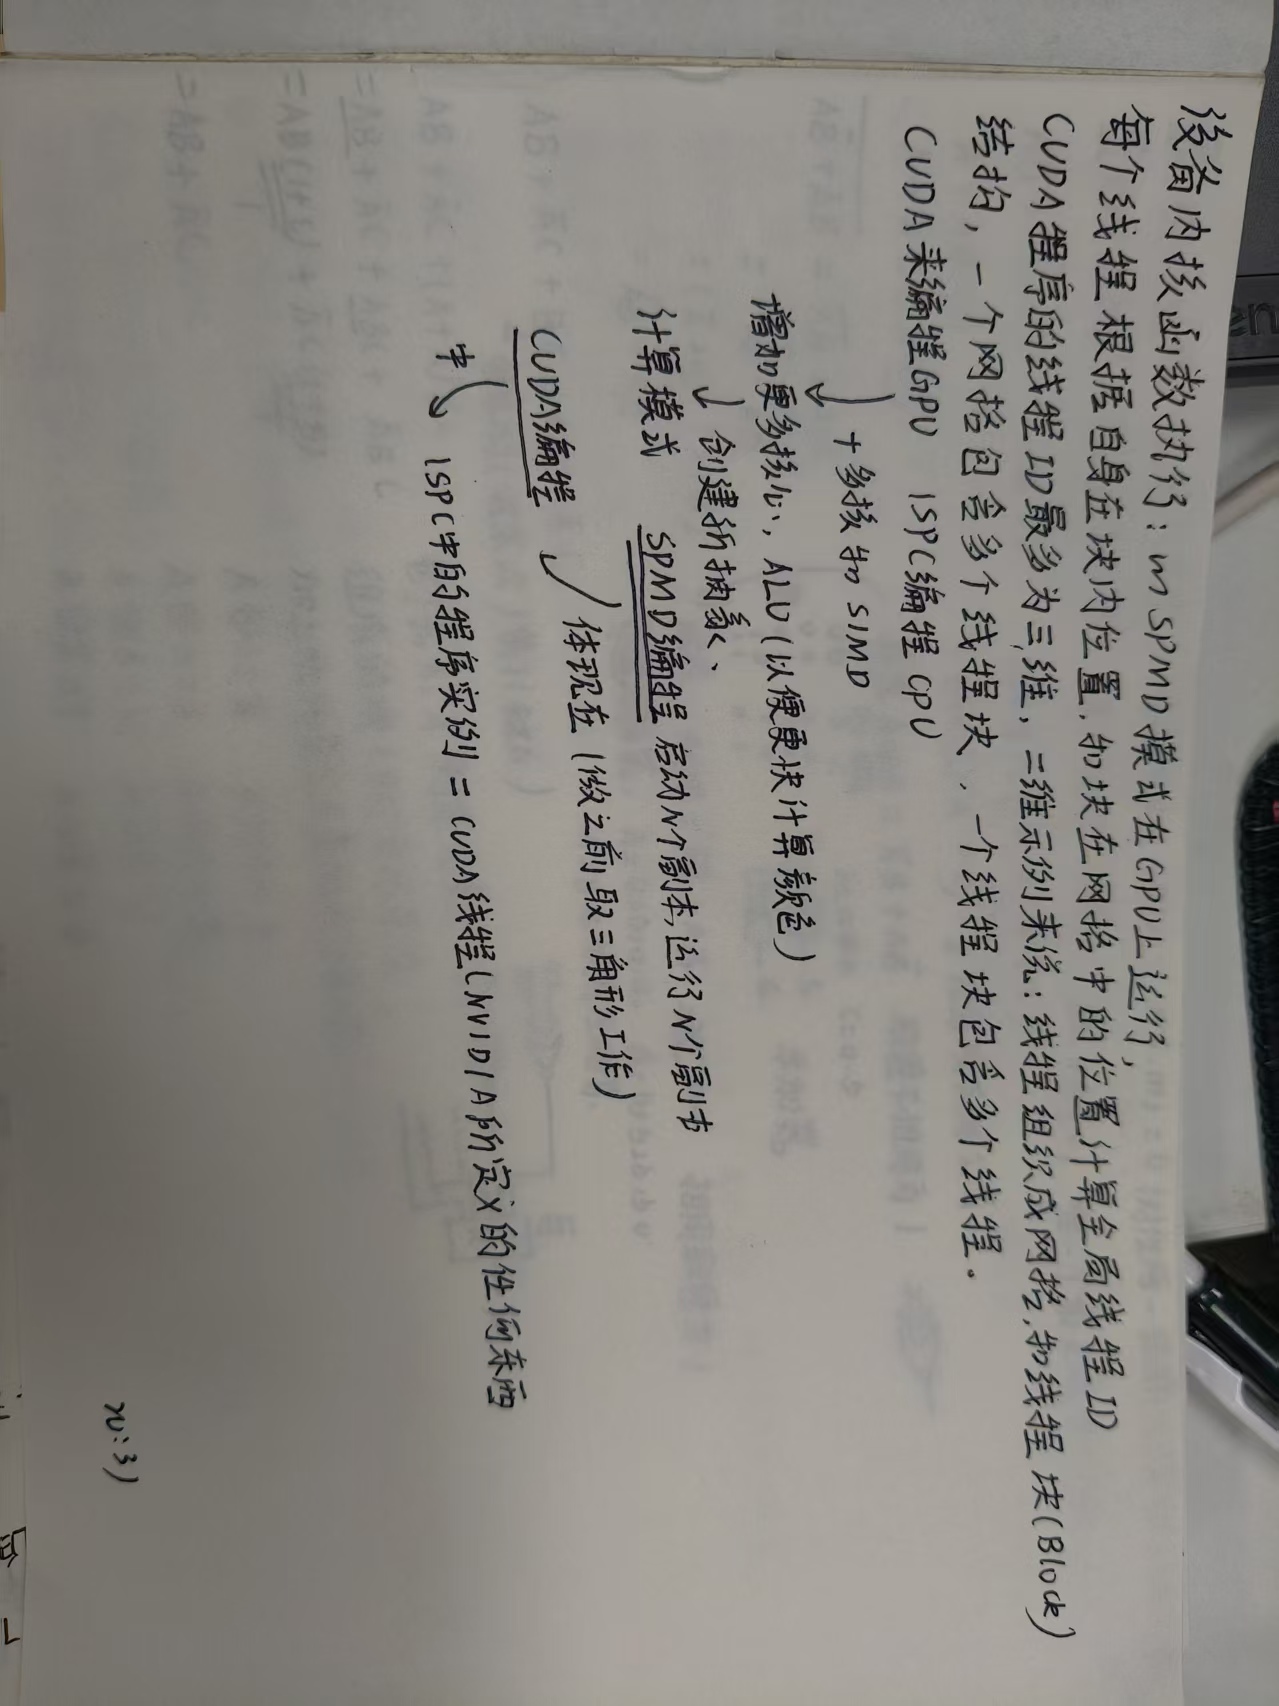 设备内核函数执行：以SPMD模式在GPU上运行，
每个线程根据自身在块内位置，和块在网格中的位置计算全局线程ID
CUDA程序的线程ID最多为三维，二维示例来说：线程组织成网格，和线程块(Block)
结构，一个网格包含多个线程块，一个线程块包含多个线程。
CUDA来编程GPU ISPC编程CPU
+多核和SIMD
增加更多核心、ALU(以便更快计算颜色)
创建新抽象、
计算模式 SPMD编程 启动N个副本，运行N个副本
体现在(做之前取三角形工作)
CUDA编程
中 ISPC中的程序实例 = CUDA线程(NVIDIA所定义的任何东西
20:31
en